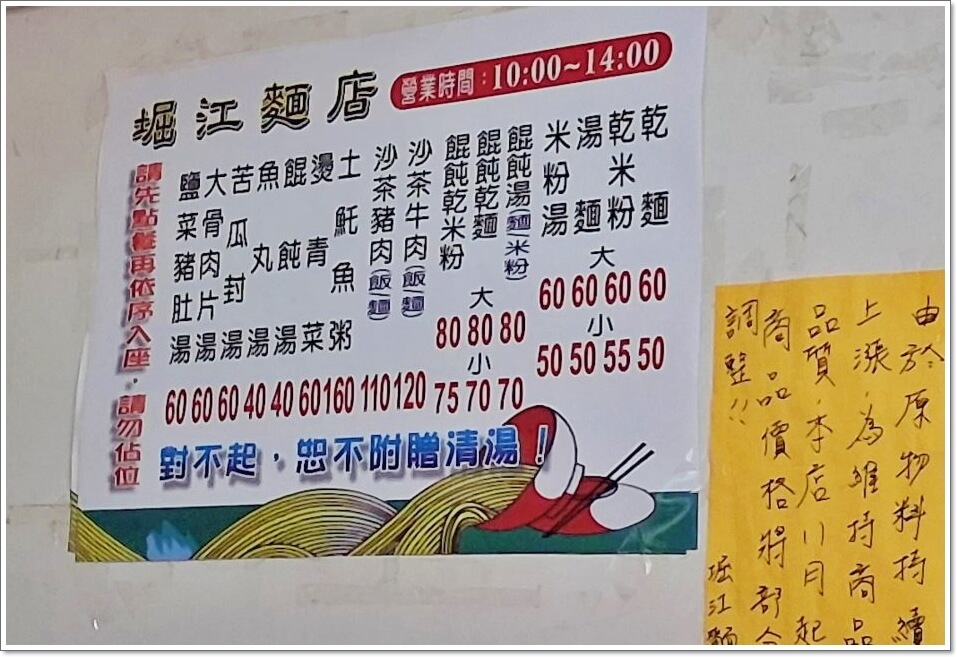 堀江麵店
營業時間：10:00~14:00
乾麵 大60 小50
乾米粉 大60 小55
湯麵 大60 小50
米粉湯 大60 小50
餛飩湯(麵/米粉) 大80 小70
餛飩乾麵 大80 小70
餛飩乾米粉 大80 小75
沙茶牛肉(飯/麵) 120
沙茶豬肉(飯/麵) 110
土魠魚粥 160
燙青菜 60
餛飩湯 40
魚丸湯 40
苦瓜封湯 60
大骨肉片湯 60
鹽菜豬肚湯 60
請先點餐再依序入座，請勿佔位
對不起，恕不附贈清湯！
由於原物料持續
上漲，為維持商品
品質，本店11月起
商品價格將部分
調整!!
堀江麵